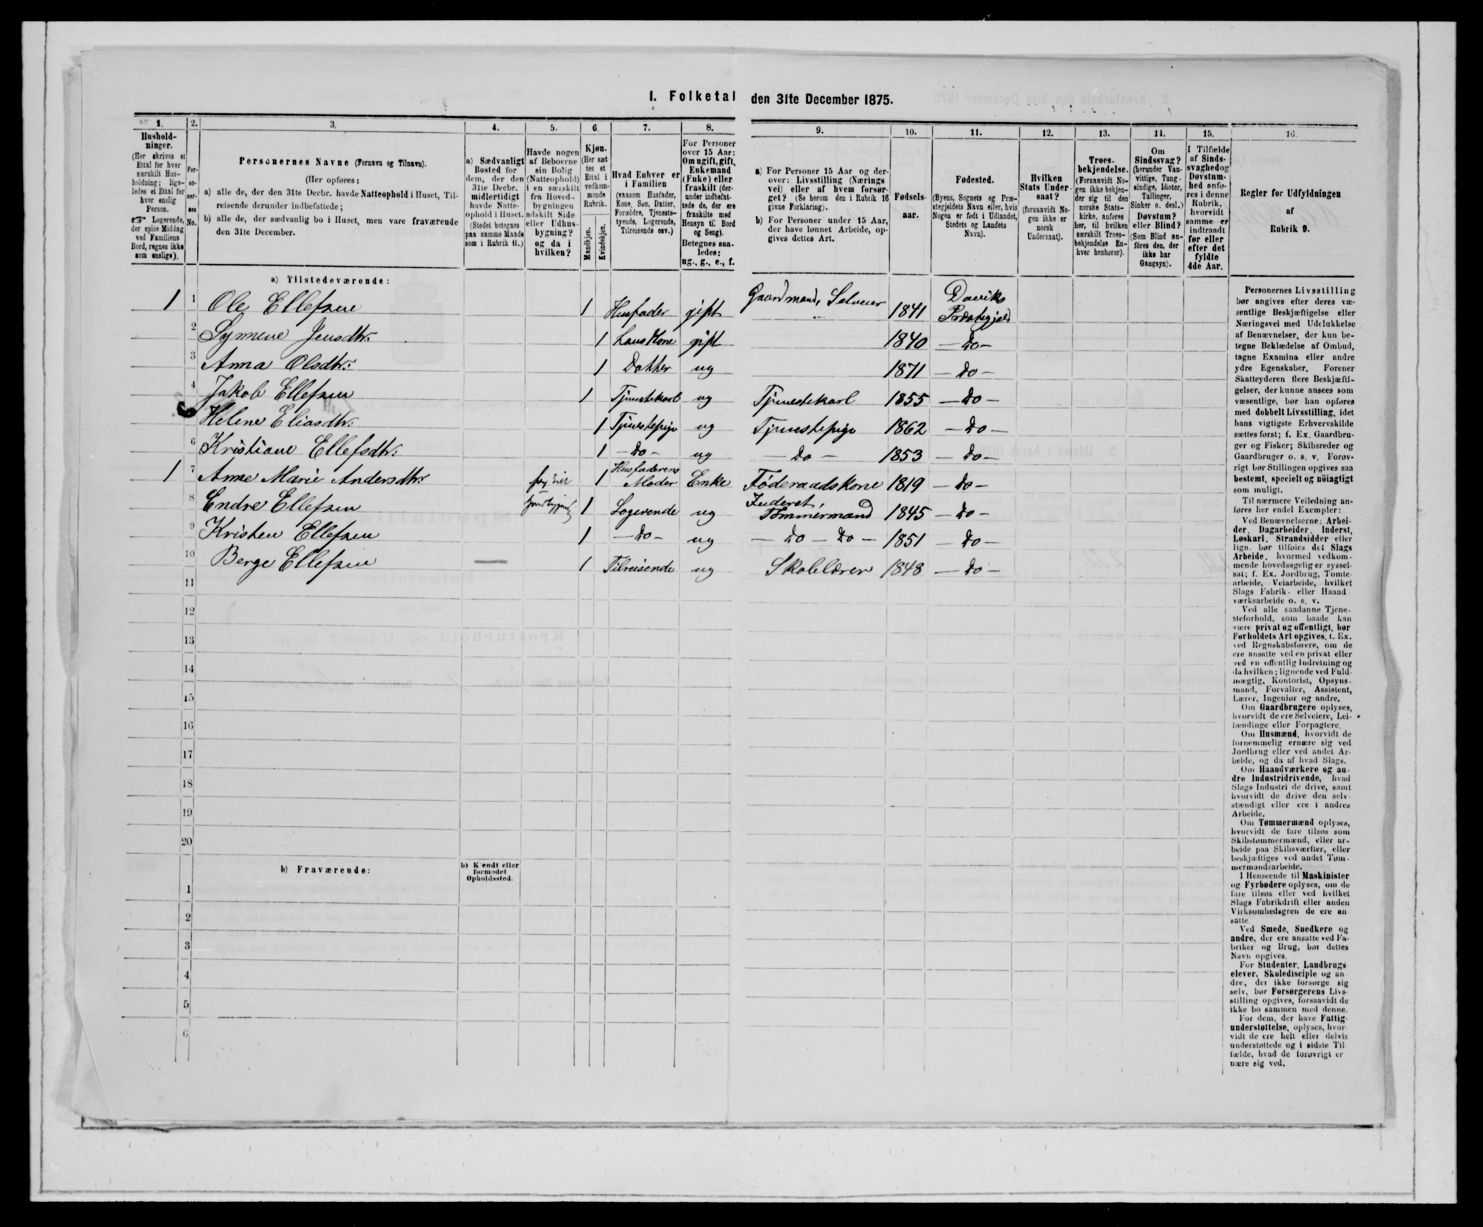 1. Folketal
den 31te December 1875.
1.
Hushold-
ninger.
(Her skrives et
Ettal for hver
særskilt Hus-
holdning; lige-
ledes et Ettal for
hver enslig
Person.
☞ Logerende,
der spise Middag
ved Familiens
Bord, regnes ikke
som enslige).
2.
Per-
so-
ner-
nes
No.
3.
Personernes Navne (Fornavn og Tilnavn).
(Her opføres:
a) alle de, der den 31te Decbr. havde Natteophold i Huset, Til-
reisende derunder indbefattede;
b) alle de, der sædvanlig bo i Huset, men vare fraværende
den 31te December.
4.
a) Sædvanligt
Bosted for
dem, der den
31te Decbr.
midlertidigt
havde Natte-
ophold i Huset.
(Stedet betegnes
paa samme Maade
som i Rubrik 11.)
5.
Havde nogen
af Beboerne
sin Bolig
(Natteophold)
i en særskilt
fra Hoved-
bygningen
adskilt Side
eller Udhus-
bygning?
og da i
hvilken?
6.
Kjøn.
(Her sæt
tes et
Ettal i
vedkom-
mende
Rubrik.
Mandkjøn.
Kvindekjøn.
7.
Hvad Enhver er
i Familien
(saasom Husfader,
Kone, Søn, Datter,
Forældre, Tjeneste-
tyende, Logerende,
Tilreisende osv.)
8.
For Personer
over 15 Aar:
Om ugift, gift,
Enkemand
(Enke) eller
fraskilt (der-
under indbefat-
tede de, der ere
fraskilte med
Hensyn til Bord
og Seng).
Betegnes saa-
ledes:
ug., g., e., f.
9.
a) For Personer 15 Aar og der-
over: Livsstilling (Nærings
vei) eller af hvem forsør-
get? (Se herom den i Rubrik 16
givne Forklaring).
b) For Personer under 15 Aar,
der have lønnet Arbeide, op-
gives dettes Art.
10.
Fødsels-
aar.
11.
Fødested.
(Byens, Sognets og Præ-
stegjeldets Navn eller, hvis
Nogen er født i Udlandet,
Stedets og Landets
Navn).
12.
Hvilken
Stats Under-
saat?
(forsaavidt No-
gen ikke er
norsk
Undersaat).
13.
Troes-
bekjendelse.
(Forsaavidt No-
gen ikke bekjen-
der sig til den
norske Stats-
kirke, anføres
her, til hvilken
særskilt Troes-
bekjendelse En-
hver henhører).
14.
Om
Sindssvag?
(herunder Van-
vittige, Tung-
sindige, Idioter,
Tullinger,
Sinker o. desl.)
Døvstum?
eller Blind?
(Som Blind an-
føres den, der
ikke har
Gangsyn).
15.
I Tilfælde
af Sinds-
svaghed og
Døvstum-
hed anfø-
res i denne
Rubrik,
hvorvidt
samme er
indtraadt
før eller
efter det
fyldte
4de Aar.
16.
Regler for Udfyldningen
af
Rubrik 9.
a) Tilstedeværende:
1 1 Ole Ellefsen 1 Husfader gift Gaardmand, Selveier 1841 Daviks Præstegjeld
2 Symene Jensdtr: 1 hans Kone gift 1840 — Do —
3 Anna Olsdtr: 1 Datter ug 1871 — Do —
4 Jakob Ellefsen 1 Tjenestekarl ug Tjenestekarl 1855 — Do —
Helene Eliasdtr: 1 Tjenestepige ug Tjenestepige 1862 — Do —
6 Kristiane Ellefsdtr: 1 — Do — ug — Do — 1853 — Do —
1 7 Anne Marie Andersdtr 1 Husfaderens Moder Enke Føderaadskone 1819 — Do —
8 Endre Ellefsen 1 Logerende ug Inderst, Tømmermand 1845 — Do —
9 Kristen Ellefsen 1 — Do — ug — Do — Do — 1851 — Do —
10 Berge Ellefsen — 1 Tilreisende ug Skolelærer 1848 — Do —
11
12
13
14
15
16
17
18
19
20
b) Fraværende:
b) Kjendt eller
formodet
Opholdssted.
1
2
3
4
5
6
Personernes Livsstilling
bør angives efter deres væ-
sentlige Beskjæftigelse eller
Næringsvei med Udelukkelse
af Benævnelser, der kun be-
tegne Beklædelse af Ombud,
tagne Examina eller andre
ydre Egenskaber. Forener
Skatteyderen flere Beskjæfti-
gelser, der kunne ansees som
væsentlige, bør han opføres
med dobbelt Livsstilling, idet
hans vigtigste Erhvervskilde
sættes først; f. Ex. Gaardbru-
ger og Fisker; Skibsreder og
Gaardbruger o. s. v. Forøv-
rigt bør Stillingen opgives saa
bestemt, specielt og nøiagtigt
som muligt.
Til nærmere Veiledning an-
føres her endel Exempler:
Ved Benævnelserne: Arbei-
der, Dagarbeider, Inderst,
Løskarl, Strandsidder eller
lign. bør tilføies det Slags
Arbeide, hvormed vedkom-
mende hovedsagelig er syssel-
sat; f. Ex. Jordbrug, Tomte-
arbeide, Veiarbeide, hvilket
Slags Fabrik- eller Haand
værksarbeide o. s. v.
Ved alle saadanne Tjene-
steforhold, som baade kan
være privat og offentligt, bør
Forholdets Art opgives, f. Ex.
ved Regnskabsførere, om de
ere ansatte ved en privat eller
ved en offentlig Indretning og
da hvilken; lignende ved Fuld-
mægtig, Kontorist, Opsyns-
mand, Forvalter, Assistent,
Lærer, Ingeniør og andre.
Om Gaardbrugere oplyses,
hvorvidt de ere Selveiere, Lei-
lændinge eller Forpagtere.
Om Husmænd, hvorvidt de
fornemmelig ernære sig ved
Jordbrug eller ved andet Ar-
beide, og da af hvad Slags.
Om Haandværkere og an-
dre Industridrivende, hvad
Slags Industri de drive, samt
hvorvidt de drive den selv-
stændigt eller ere i andres
Arbeide.
Om Tømmermænd oplyses,
hvorvidt de fare tilsøs som
Skibstømmermænd, eller ar-
beide paa Skibsværfter, eller
beskjæftiges ved andet Tøm-
mermandsarbeide.
I Henseende til Maskinister
og Fyrbødere oplyses, om de
fare tilsøs eller ved hvilket
Slags Fabrikdrift eller anden
Virksomhedsgren de ere an-
satte.
Ved Smede, Snedkere og
andre, der ere ansatte ved Fa-
briker og Brug, bør dettes
Navn opgives.
For Studenter, Landbrugs
elever, Skoledisciple og an-
dre, der ikke forsørge sig
selv, bør Forsørgerens Livs-
stilling opgives, forsaavidt de
ikke bo sammen med denne.
For dem, der have Fattig-
understøttelse, oplyses, hvor-
vidt de ere helt eller delvis
understøttede og i sidste Til-
fælde, hvad de forøvrigt er
nære sig ved.